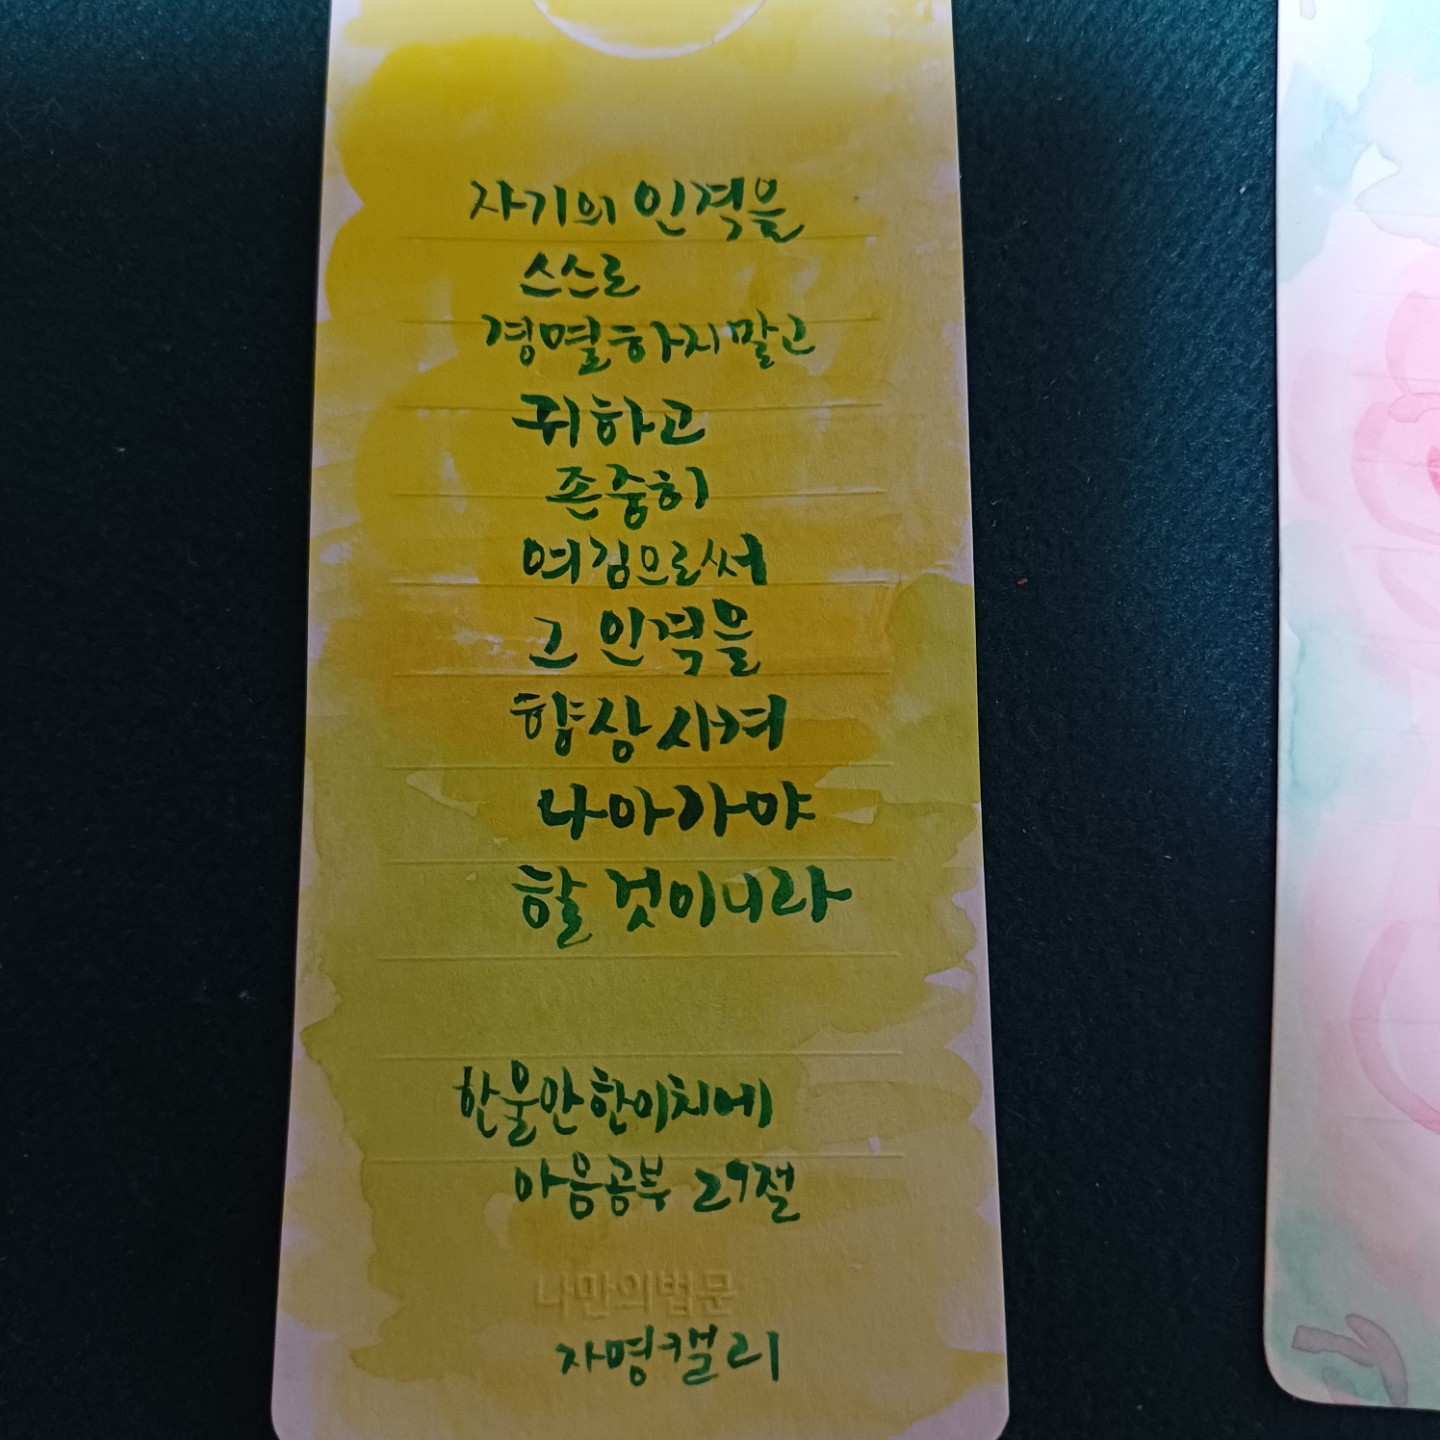 자기의 인격을
스스로
경멸하지 말고
귀하고
존중히
여김으로써
그 인격을
향상시켜
나아가야
할 것이니라
한울안 한이치에
마음공부 29절
나만의법문
자명캘리